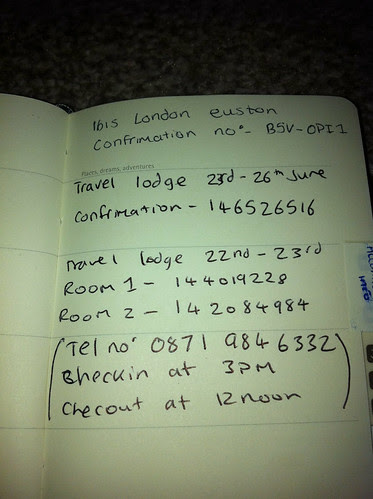 Ibis London euston
Confrimation no:- B5V-OPI1
Plans, dreams, adventures
Travel lodge 23rd-26th June
Confrimation - 146526516
Travel lodge 22nd-23rd
Room 1 - 144019228
Room 2 - 142084984
(Tel no: 0871 984 6332)
Bheckin at 3PM
Checout at 12 noon
INFO